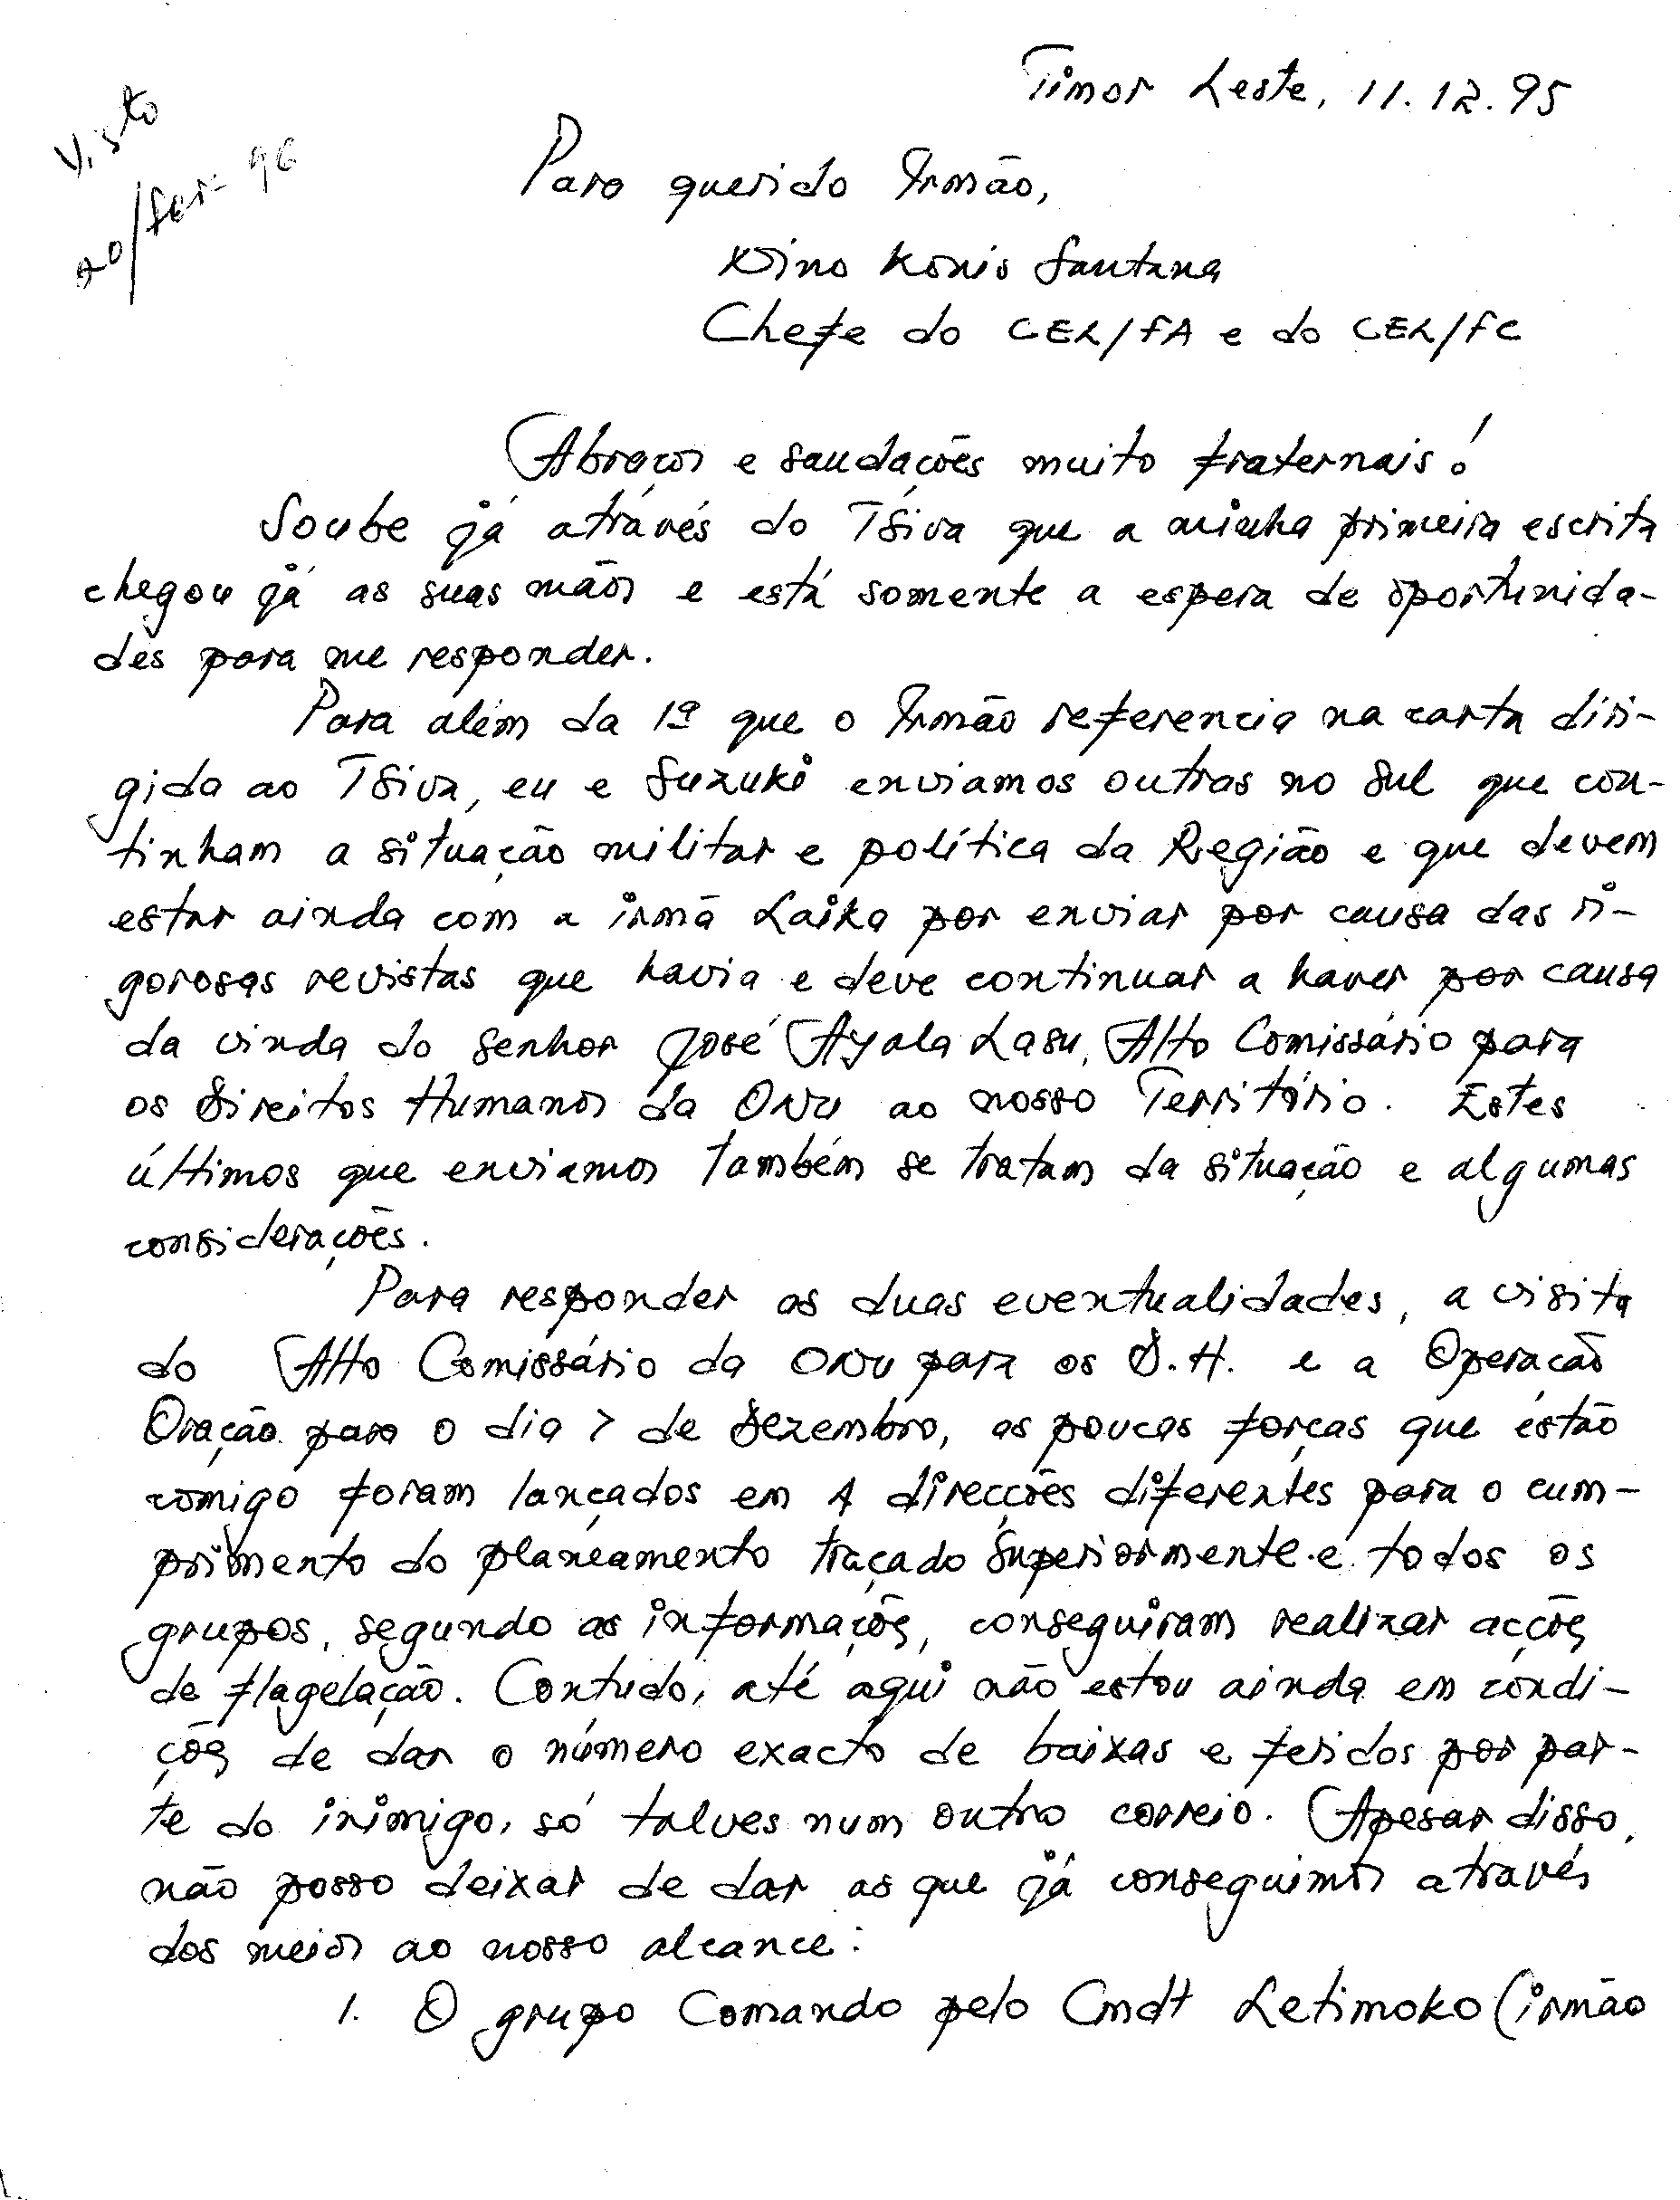 Timor Leste, 11.12.95
Visto
20/fev. 96
Para querido Irmão,
Nino Konis Santana
Chefe do CEL/FA e do CEL/FC
Abraços e saudações muito fraternais!
Soube já através do Tsiva que a minha primeira escrita
chegou já as suas mãos e está somente a espera de oportunida-
des para me responder.
Para além da 1ª que o Irmão referencia na carta diri-
gida ao Tsiva, eu e Suzuki enviamos outras no Sul que con-
tinham a situação militar e política da Região e que devem
estar ainda com a irmã Laika por enviar por causa das ri-
gorosas revistas que havia e deve continuar a haver por causa
da vinda do senhor José Ayala Lasu, Alto Comissário para
os Direitos Humanos da ONU ao nosso Território. Estes
últimos que enviamos também se tratam da situação e algumas
considerações.
Para responder as duas eventualidades, a visita
do Alto Comissário da ONU para os D.H. e a Operação
Oração para o dia 7 de Dezembro, as poucas forças que estão
comigo foram lançados em 4 direcções diferentes para o cum-
primento do planeamento traçado Superiormente e todos os
grupos, segundo as informações, conseguiram realizar acções
de flagelação. Contudo, até aqui não estou ainda em condi-
ções de dar o número exacto de baixas e feridos por par-
te do inimigo, só talves num outro correio. Apesar disso,
não posso deixar de dar as que já conseguimos através
dos meios ao nosso alcance:
1. O grupo Comando pelo Cmdt Letimoko (irmão